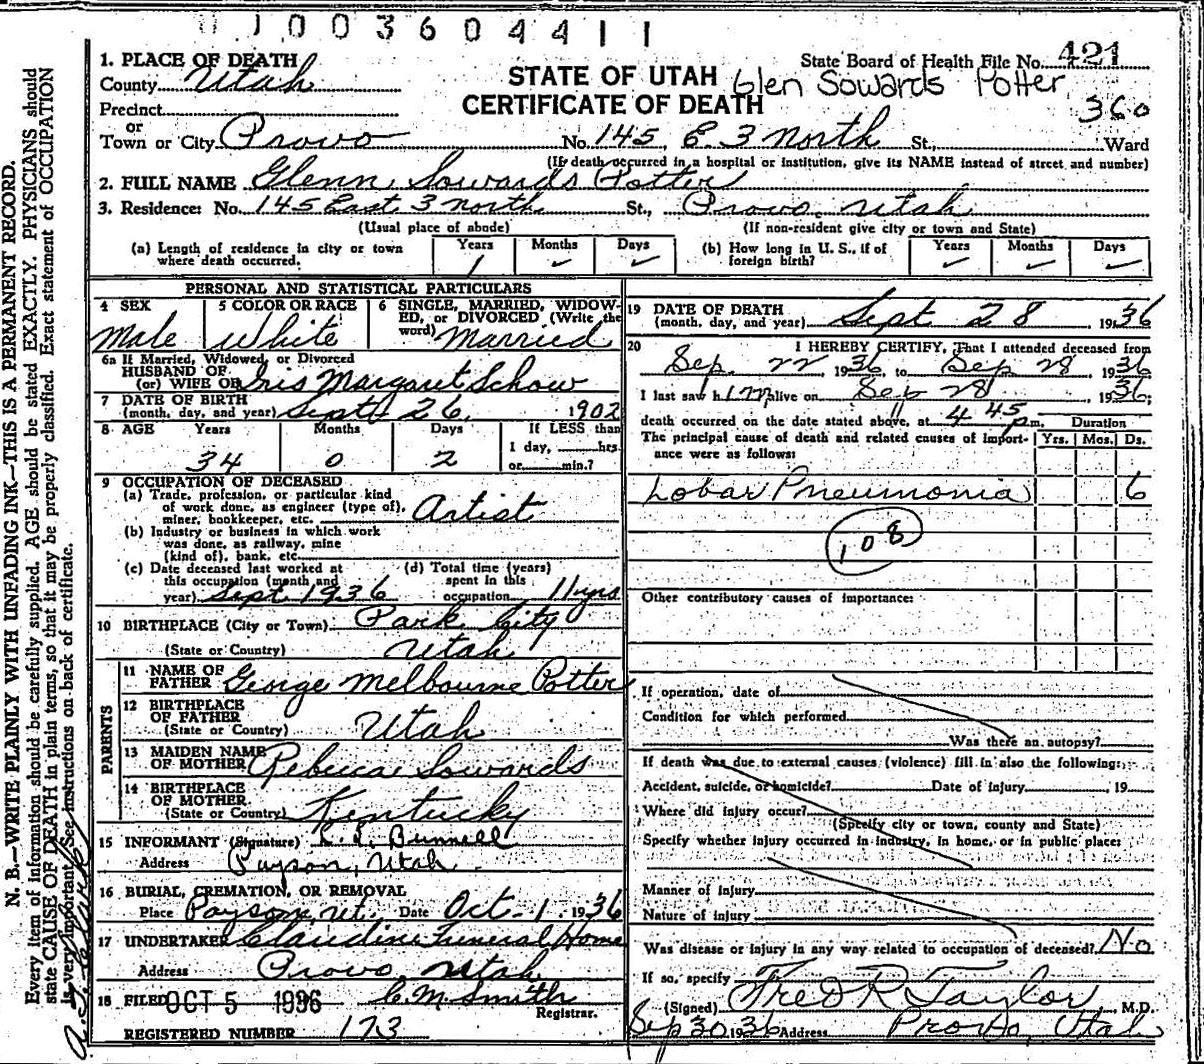 1003604411
1. PLACE OF DEATH
County Utah
Precinct
or
Town or City Provo
STATE OF UTAH
CERTIFICATE OF DEATH
State Board of Health File No. 421
Glen Sowards Potter
360
No. 145 E. 3 North St., Ward
(If death occurred in a hospital or institution, give its NAME instead of street and number)
2. FULL NAME Glenn Sowards Potter
3. Residence: No. 145 East 3 North St., Provo, Utah
(Usual place of abode) (If non-resident give city or town and State)
(a) Length of residence in city or town where death occurred. Years 1 Months ✓ Days ✓
(b) How long in U. S., if of foreign birth? Years ✓ Months ✓ Days ✓
PERSONAL AND STATISTICAL PARTICULARS
4 SEX Male
5 COLOR OR RACE White
6 SINGLE, MARRIED, WIDOWED, or DIVORCED (Write the word) Married
6a If Married, Widowed, or Divorced
HUSBAND OF
(or) WIFE OF Iris Margaret Schow
7 DATE OF BIRTH
(month, day, and year) Sept 26 1902
8 AGE Years 34 Months 0 Days 2 If LESS than 1 day, hrs. or min.?
9 OCCUPATION OF DECEASED
(a) Trade, profession, or particular kind
of work done, as engineer (type of),
miner, bookkeeper, etc. Artist
(b) Industry or business in which work
was done, as railway, mine
(kind of), bank, etc.
(c) Date deceased last worked at
this occupation (month and
year) Sept. 1936
(d) Total time (years)
spent in this
occupation 11 yrs
10 BIRTHPLACE (City or Town) Park City
(State or Country) Utah
PARENTS
11 NAME OF
FATHER George Melbourne Potter
12 BIRTHPLACE
OF FATHER
(State or Country) Utah
13 MAIDEN NAME
OF MOTHER Rebecca Sowards
14 BIRTHPLACE
OF MOTHER
(State or Country) Kentucky
15 INFORMANT (Signature) L. S. Bunnell
Address Payson, Utah
16 BURIAL, CREMATION, OR REMOVAL
Place Payson, Ut. Date Oct. 1 1936
17 UNDERTAKER Claudin Funeral Home
Address Provo, Utah
18 FILED OCT 5 1936 C. M. Smith
Registrar.
REGISTERED NUMBER 173
19 DATE OF DEATH
(month, day, and year) Sept 28 1936
20 I HEREBY CERTIFY, That I attended deceased from
Sep. 22, 1936, to Sep 28, 1936
I last saw him alive on Sep 28 1936;
death occurred on the date stated above, at 4 45 p.m.
Duration
The principal cause of death and related causes of importance were as follows: Yrs. Mos. Ds.
Lobar Pneumonia 6
108
Other contributory causes of importance:
If operation, date of
Condition for which performed
Was there an autopsy?
If death was due to external causes (violence) fill in also the following:
Accident, suicide, or homicide? Date of injury, 19
Where did injury occur?
(Specify city or town, county and State)
Specify whether injury occurred in industry, in home, or in public place:
Manner of injury
Nature of injury
Was disease or injury in any way related to occupation of deceased? No
If so, specify
(Signed) Fred R Taylor M.D.
Sep 30 1936 Address Provo, Utah
N. B.—WRITE PLAINLY WITH UNFADING INK—THIS IS A PERMANENT RECORD.
Every item of information should be carefully supplied. AGE should be stated EXACTLY. PHYSICIANS should
state CAUSE OF DEATH in plain terms, so that it may be properly classified. Exact statement of OCCUPATION
is very important. See instructions on back of certificate.